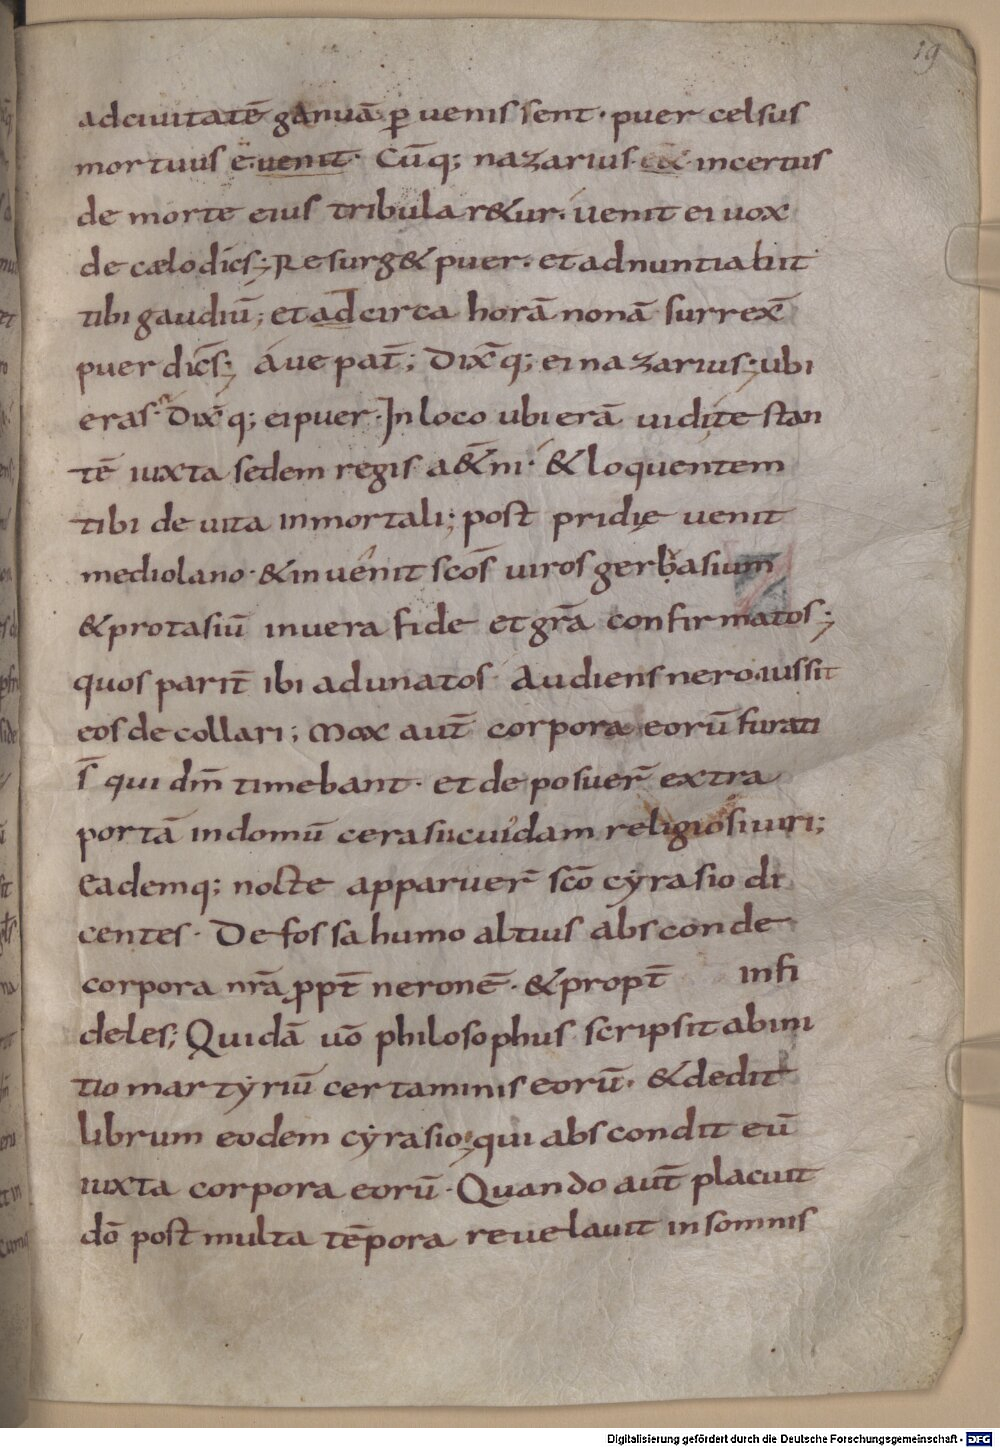 19
adciuitatē ganuā ꝑ uenissent · puer celsus
mortuus ē uenit · Cūq; nazarius · incertus
de morte eius tribular&ur · uenit ei uox
de cælo dic̄s; Resurg& puer · et adnuntiabit
tibi gaudiū; et ad circa horā nonā surrex̄
puer dic̄s; aue pat̄; Dix̄q; ei nazarius; ubi
eras · Dix̄q; ei puer · In loco ubi erā uidi te stan
tē iuxta sedem regis a&̄ni · & loquentem
tibi de uita inmortali; post pridię uenit
mediolano · & inuenit sc̄os uiros gerbasium
& protasiū in uera fide et gr̄a confirmatos;
quos parit̄ ibi adunatos · Audiens nero iussit
eos decollari; Mox aut̄ corpora eorū furati
s̄ qui dm̄ timebant · et deposuer̄ extra
portā in domū cerasii cuidam religiosi uiri;
Eademq; nocte apparuer̄ sc̄o cyrasio di
centes · De fossa humo altius absconde
corpora nr̄a ꝓpt̄ neronē · & propt̄ infi
deles; Quidā uō philosophus scripsit ab ini
tio martyriū certaminis eorū · & dedit
librum eodem cyrasio; qui abscondit eū
iuxta corpora eorū · Quando aut̄ placuit
dō post multa tēpora reuelauit in somnis
Digitalisierung gefördert durch die Deutsche Forschungsgemeinschaft - DFG